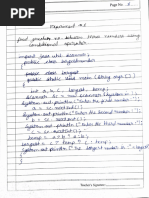 Page No. 5
Experiment #5
find greatest no. between three number using
conditional operator
import java.util.Scanner;
public class
public class largest
public static void main (String args[])
int a, b, c, largest, temp;
Scanner sc = new Scanner (System.in);
System.out.println("Enter the first number");
a = sc.nextInt();
System.out.println("Enter the second number");
b = sc.nextInt();
System.out.println("Enter the third number");
c = sc.nextInt();
temp =
largest = c > temp ? c : temp;
System.out.println("The largest number is" + largest
Teacher's Signature